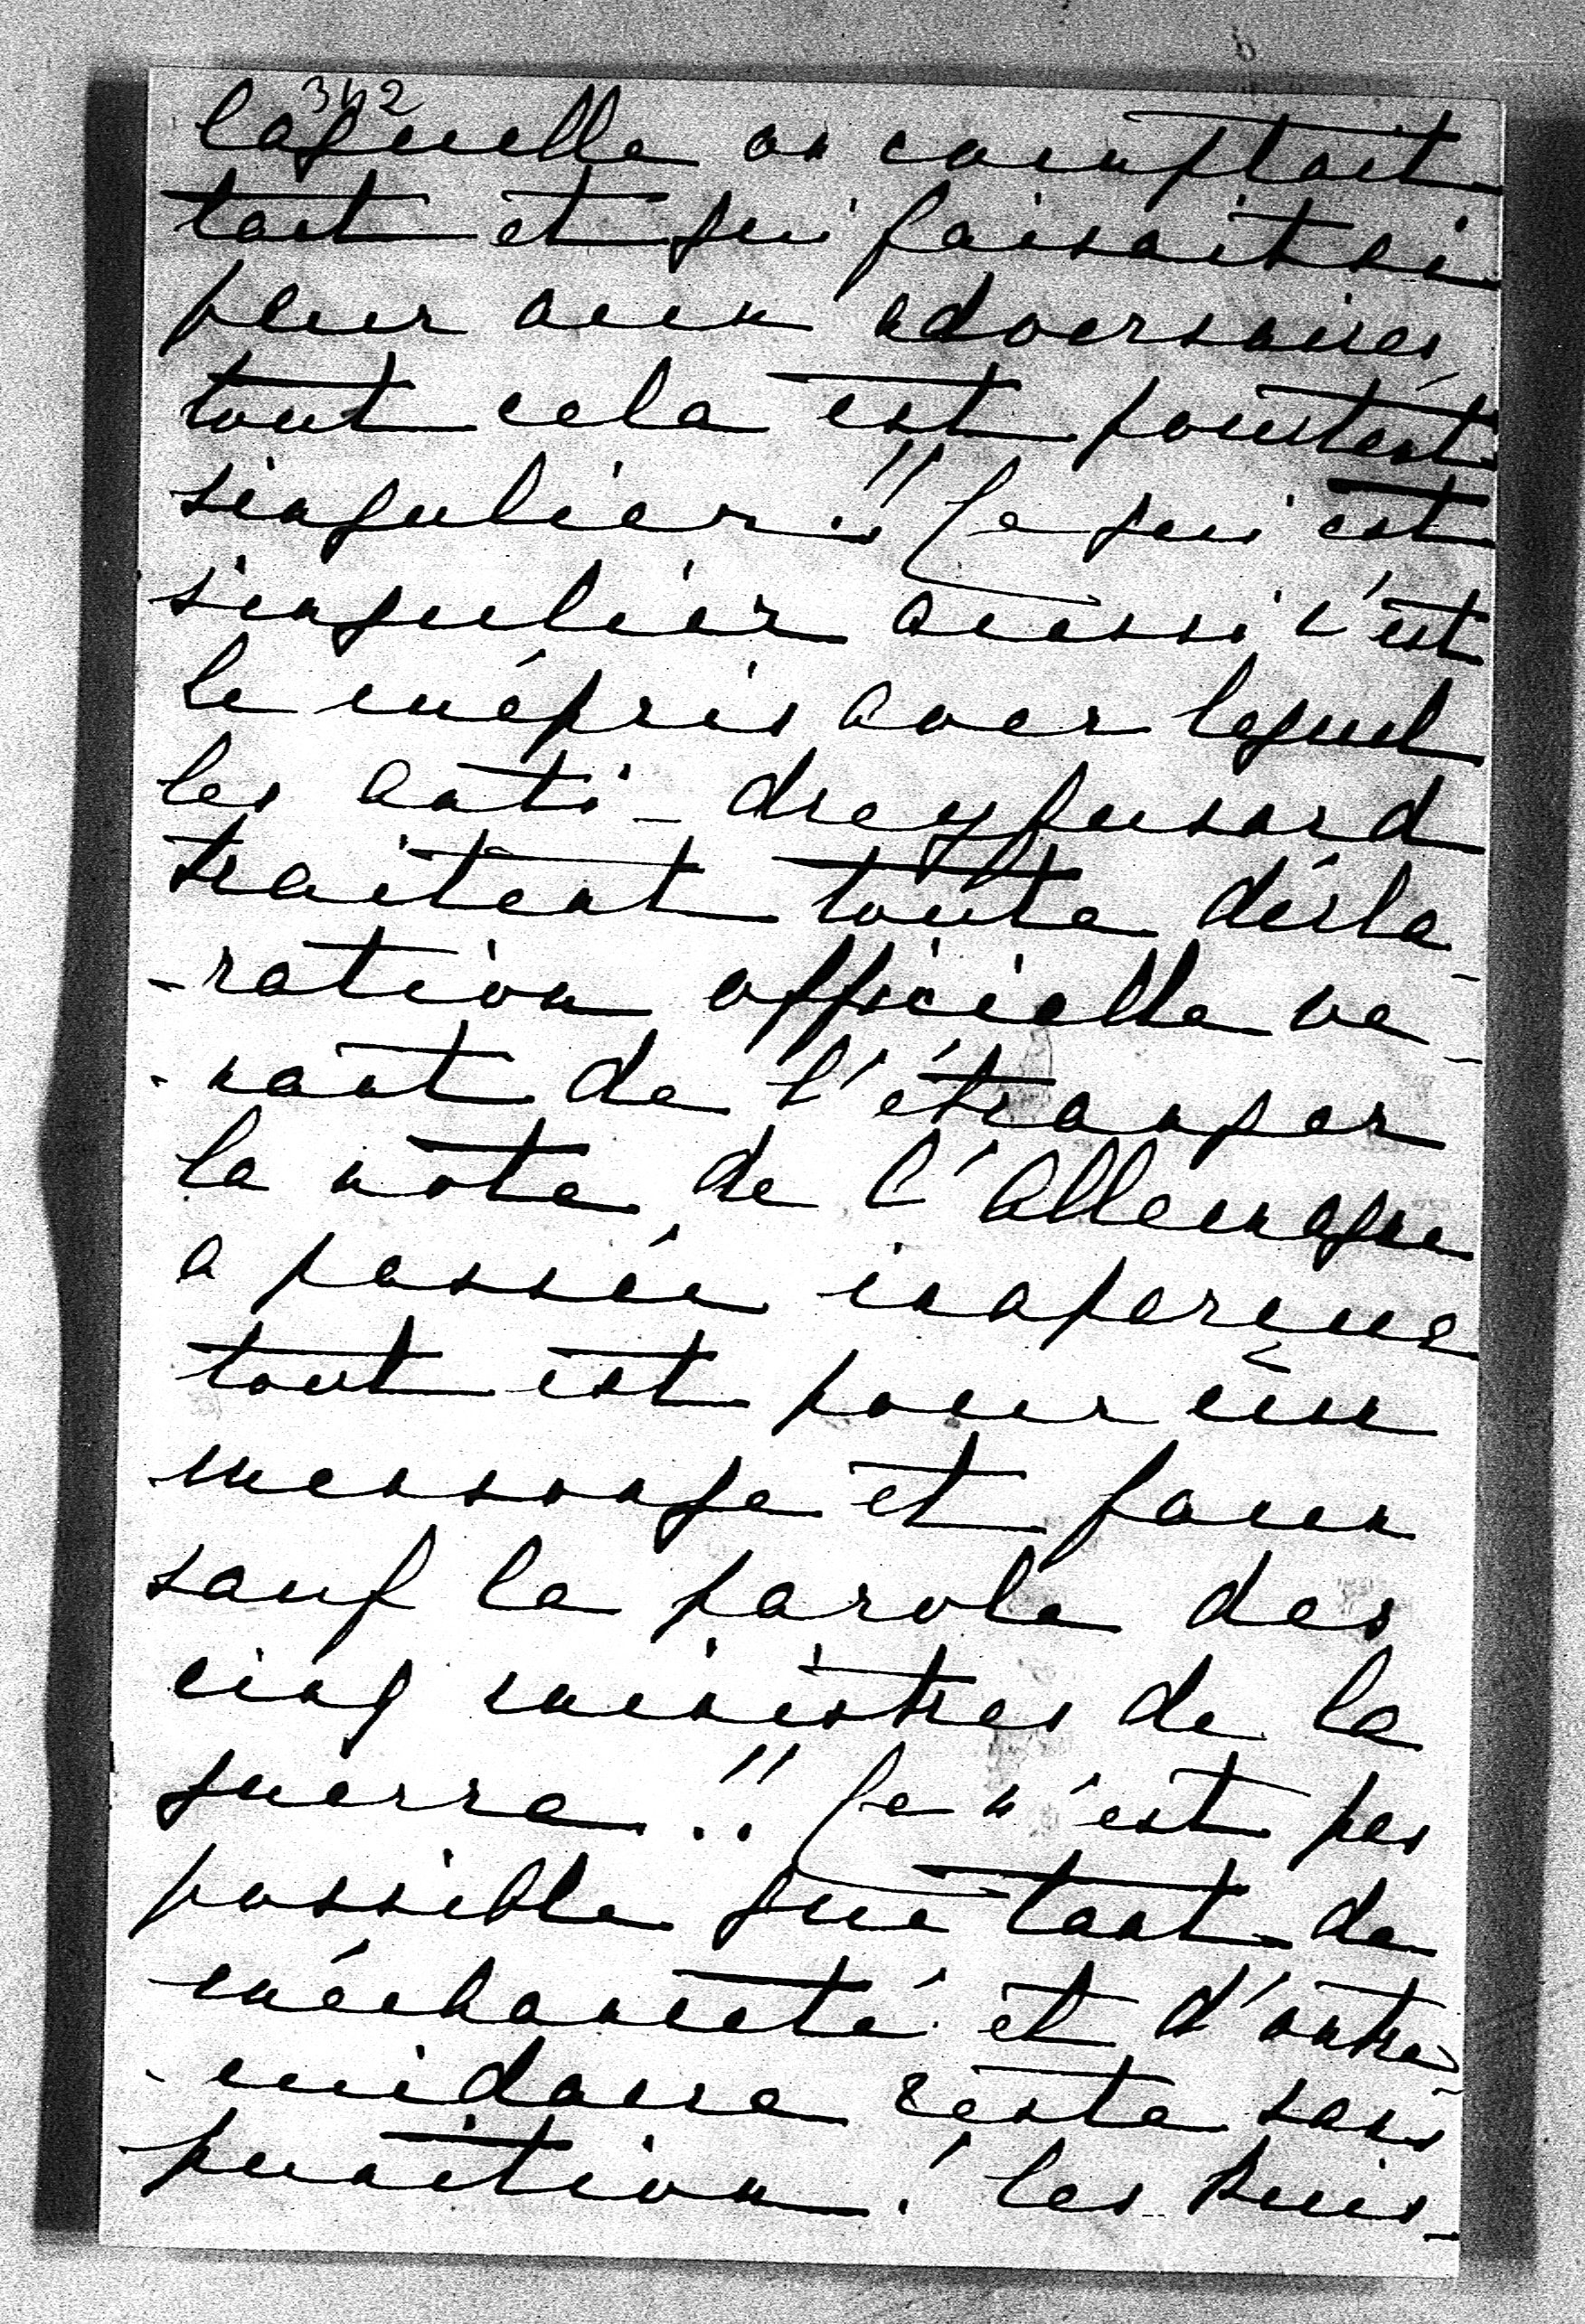 342
laquelle on comptait
tant et qui faisait si
peur aux adversaires,
tout cela est pourtant
singulier !! Ce qui est
singulier aussi c'est
le mépris avec lequel
les anti-dreyfusard
traitent toute décla-
-ration officielle ve-
-nant de l'étranger
la note de l'Allemagne
a passée inaperçue
tout est pour eux
mensonge et faux
sauf la parole des
cinq ministres de la
guerre !! Ce n'est pas
possible que tant de
méchanceté et d'outre-
-cuidance reste sans
punition ! les Puis-